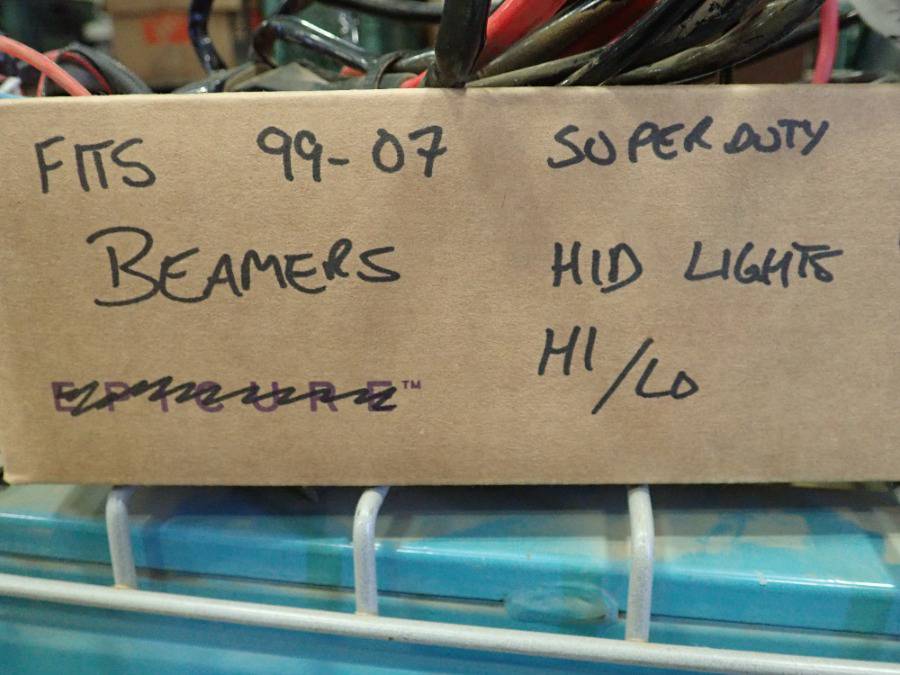 FITS 99-07 SUPERDUTY
BEAMERS HID LIGHTS
HI/LO
EPICURE™